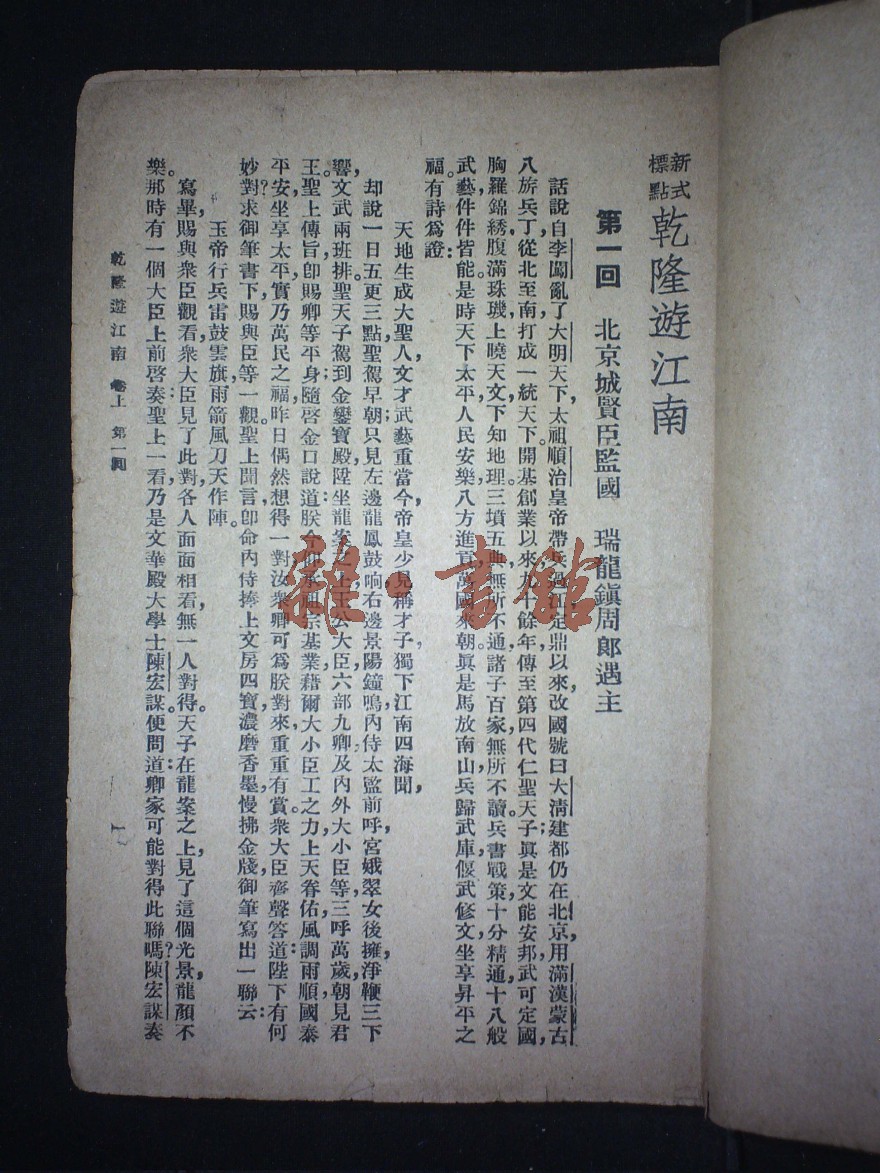 新式標點 乾隆遊江南
第一回 北京城賢臣監國 瑞龍鎮周郎遇主
話說自李闖亂了大明天下，太祖順治皇帝帶兵過江定鼎以來，改國號曰大清；建都仍在北京，用滿漢蒙古
八旂兵丁，從北至南打成一統天下。開基創業以來，九十餘年，傳至第四代仁聖天子，眞是文能安邦，武可定國，
胸羅錦綉，腹滿珠璣，上曉天文，下知地理，三墳五典，無所不通，諸子百家，無所不讀。兵書戰策，十分精通，十八般
武藝，件件皆能。是時天下太平，人民安樂，八方進貢，萬國來朝。眞是馬放南山，兵歸武庫，偃武修文，坐享昇平之
福。有詩爲證：
天地生成大聖人，文才武藝重當今，帝皇少見稱才子，獨下江南四海聞，
却說一日五更三點，聖駕早朝，只見左邊龍鳳鼓响，右邊景陽鐘鳴，內侍太監前呼，宮娥翠女後擁，淨鞭三下
響，文武兩班排。聖天子駕到金鑾寶殿，陞坐龍案之上，王公大臣，六部九卿，及內外大小臣等，三呼萬歲，朝見君
王。聖上傳旨，卽賜卿等平身；隨啓金口說道：朕今仰承祖宗基業，藉爾大小臣工之力，上天眷佑，風調雨順，國泰
平安，坐享太平，實乃萬民之福，昨日偶然想得一對，汝衆卿可爲朕對來，重重有賞。衆大臣齊聲答道：陛下有何
妙對？求御筆書下，賜與臣等一觀。聖上聞言，卽命內侍捧上文房四寶，濃磨香墨，慢拂金牋，御筆寫出一聯云：
玉帝行兵，雷鼓雲旗，雨箭風刀天作陣。
寫畢，賜與衆臣觀看，衆大臣見了此對，各人面面相看，無一人對得。天子在龍案之上，見了這個光景，龍顏不
樂。那時有一個大臣，上前啓奏，聖上一看，乃是文華殿大學士陳宏謀。便問道：卿家可能對得此聯嗎？陳宏謀奏
乾隆遊江南 卷上 第一回 一
龍·書館